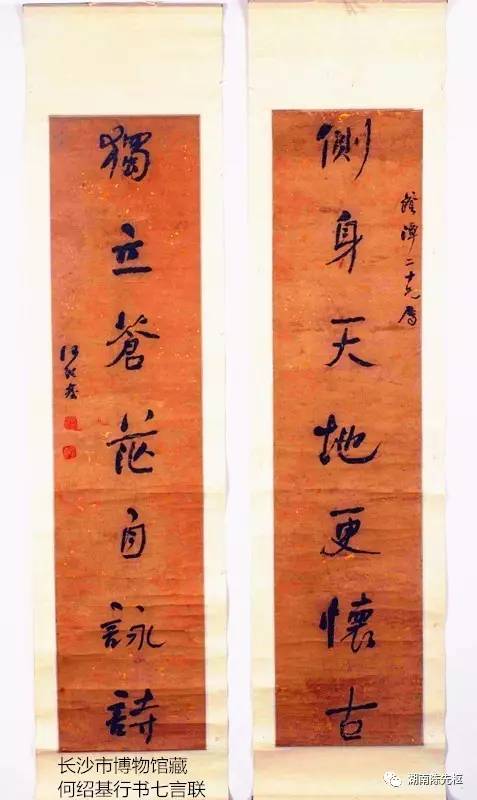 側身天地更懷古
潭二十兄屬
獨立蒼茫自詠詩
何紹基
长沙市博物馆藏
何绍基行书七言联
湖南陈先枢